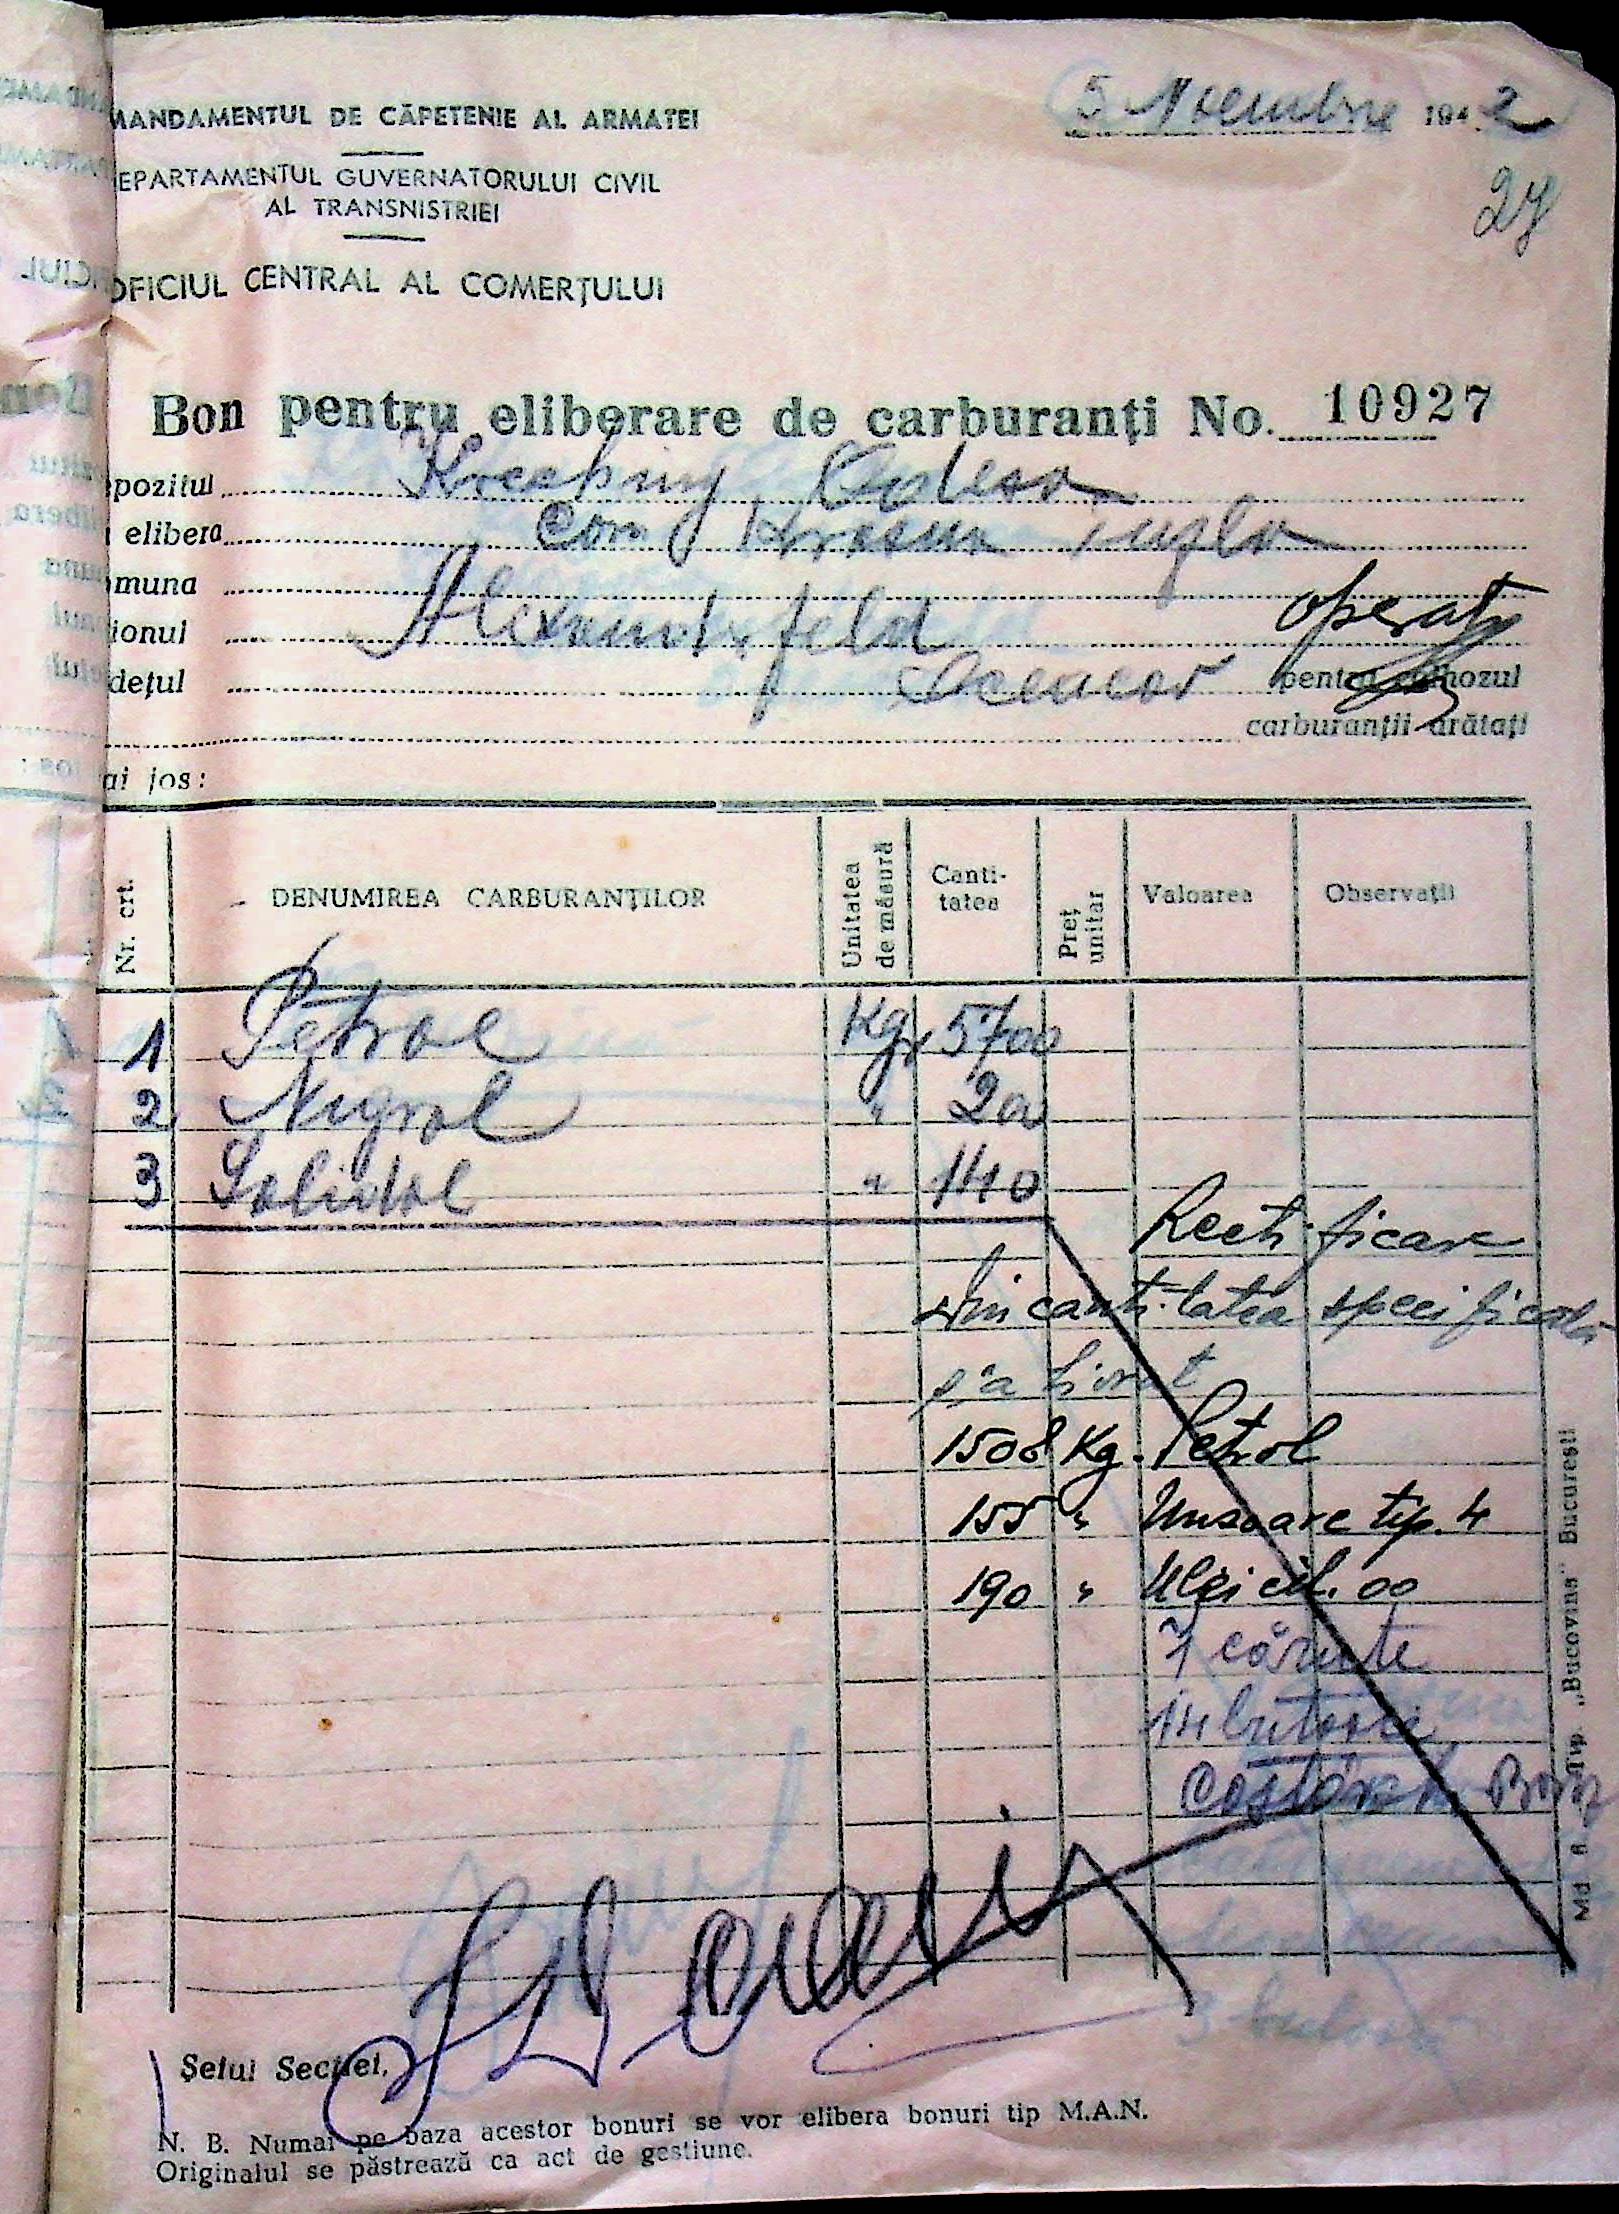 MANDAMENTUL DE CĂPETENIE AL ARMATEI
5 Noembrie 1942
EPARTAMENTUL GUVERNATORULUI CIVIL
AL TRANSNISTRIEI
27
OFICIUL CENTRAL AL COMERȚULUI
Bon pentru eliberare de carburanți No. 10927
pozitul Odesa
elibera Com
muna
ionul Alexandrfeld operat
dețul Oceacov pentru colhozul
carburanții arătați
ai jos:
Nr. crt. DENUMIREA CARBURANȚILOR Unitatea de măsură Canti-tatea Preț unitar Valoarea Observații
1 Petrol Kgr 5700
2 Nigrol " 20
3 Solidol " 140
Rectificare
Din cantitatea specificată
s'a livrat
1508 Kg. Petrol
155 " Unsoare tip. 4
190 " Ulei cil. 00
7 căruțe
14 butoaie
Șeful Secției,
N. B. Numai pe baza acestor bonuri se vor elibera bonuri tip M.A.N.
Originalul se păstrează ca act de gestiune.
Md 6 Tip. „Bucovina" București